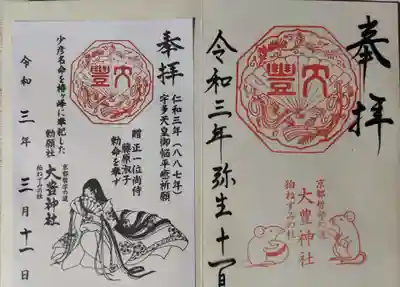 奉拝
大豊
仁和三年（八八七年）
宇多天皇御悩平癒祈願
贈正一位尚侍
藤原淑子
勅命を奉ず
少彦名命を椿ヶ峰に奉祀した
勅願社
京都哲学の道
大豊神社
狛ねずみの社
令和三年三月十一日
奉拝
大豊
京都哲学の道
大豊神社
狛ねずみの社
令和三年弥生十一日